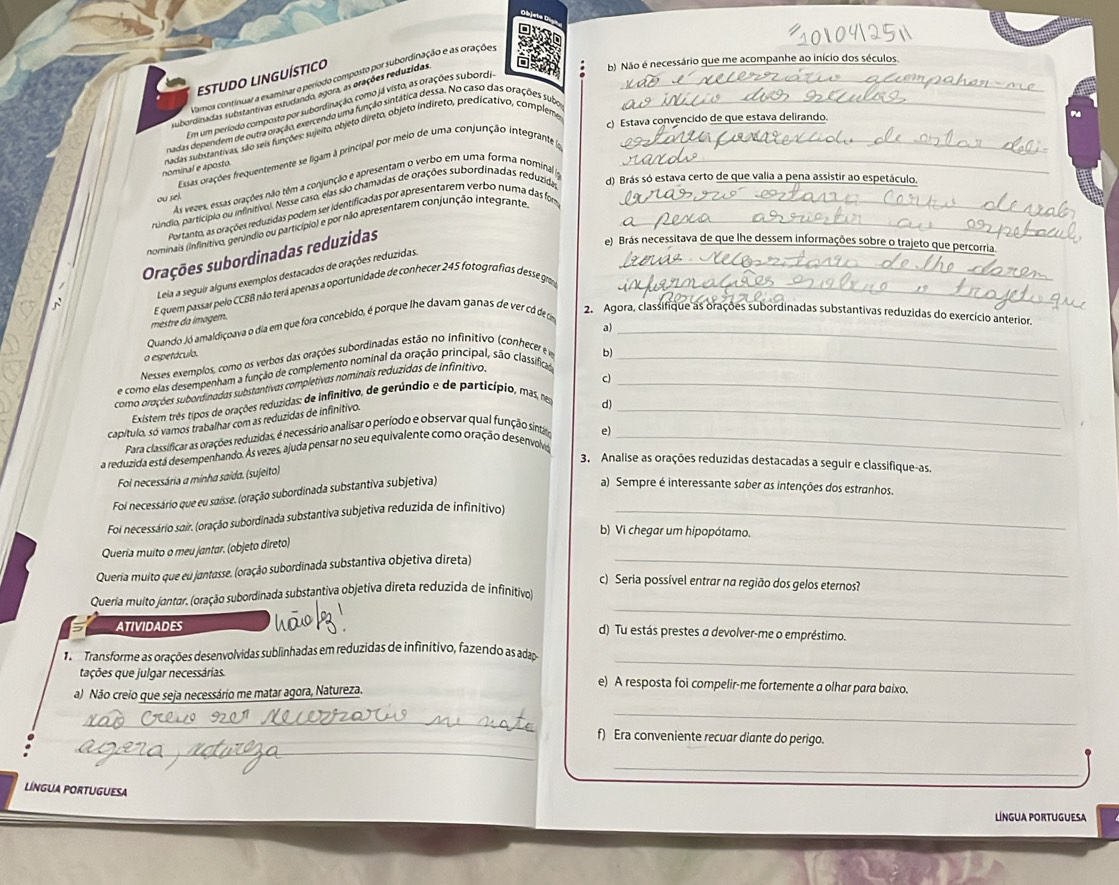 Objeto Digital
ESTUDO LINGUÍSTICO
Vamos continuar a examinar o período composto por subordinação e as orações
subordinadas substantivas estudando, agora, as orações reduzidas.
Em um período composto por subordinação, como já visto, as orações subordi-
nadas dependem de outra oração, exercendo uma função sintática dessa. No caso das orações subor
nadas substantivas, são seis funções: sujeito, objeto direto, objeto indireto, predicativo, complemen
nominal e aposto.
Essas orações frequentemente se ligam à principal por meio de uma conjunção integrante
ou se).
Às vezes, essas orações não têm a conjunção e apresentam o verbo em uma forma nominal
rúndio, particípio ou infinitivo). Nesse caso, elas são chamadas de orações subordinadas reduzidas
Portanto, as orações reduzidas podem ser identificadas por apresentarem verbo numa das form
nominais (infinitivo, gerúndio ou particípio) e por não apresentarem conjunção integrante.
Orações subordinadas reduzidas
Leia a seguir alguns exemplos destacados de orações reduzidas.
E quem passar pelo CCBB não terá apenas a oportunidade de conhecer 245 fotografias desse gran
mestre da imagem.
Quando Jó amaldiçoava o dia em que fora concebido, é porque lhe davam ganas de ver cá de
o espetáculo.
Nesses exemplos, como os verbos das orações subordinadas estão no infinitivo (conhecer e
e como elas desempenham a função de complemento nominal da oração principal, são classificad
como orações subordinadas substantivas completivas nominais reduzidas de infinitivo.
Existem três tipos de orações reduzidas: de infinitivo, de gerúndio e de particípio, mas, nes
capítulo, só vamos trabalhar com as reduzidas de infinitivo.
Para classificar as orações reduzidas, é necessário analisar o período e observar qual função sintátic
a reduzida está desempenhando. Às vezes, ajuda pensar no seu equivalente como oração desenvolvid
Foi necessária a minha saída. (sujeito)
Foi necessário que eu saísse. (oração subordinada substantiva subjetiva)
Foi necessário sair. (oração subordinada substantiva subjetiva reduzida de infinitivo)
Queria muito o meu jantar. (objeto direto)
Queria muito que eu jantasse. (oração subordinada substantiva objetiva direta)
Queria muito jantar. (oração subordinada substantiva objetiva direta reduzida de infinitivo)
ATIVIDADES
não fez!
1. Transforme as orações desenvolvidas sublinhadas em reduzidas de infinitivo, fazendo as adap-
tações que julgar necessárias.
a) Não creio que seja necessário me matar agora, Natureza.
não creio ser necessario me mata
agora, natureza
LÍNGUA PORTUGUESA
10104125
b) Não é necessário que me acompanhe ao início dos séculos.
não é necessário acompahar-me
ao inicio dos seculos
c) Estava convencido de que estava delirando.
estava convencido de estar deli-
rando
d) Brás só estava certo de que valia a pena assistir ao espetáculo.
estava certo de valer
a pena assistir ao espetaculo
e) Brás necessitava de que lhe dessem informações sobre o trajeto que percorria.
necessitava de lhe darem
informações sobre o trajeto que
percorria
2. Agora, classifique as orações subordinadas substantivas reduzidas do exercício anterior.
a)
b)
c)
d)
e)
3. Analise as orações reduzidas destacadas a seguir e classifique-as.
a) Sempre é interessante saber as intenções dos estranhos.
b) Vi chegar um hipopótamo.
c) Seria possível entrar na região dos gelos eternos?
d) Tu estás prestes a devolver-me o empréstimo.
e) A resposta foi compelir-me fortemente a olhar para baixo.
f) Era conveniente recuar diante do perigo.
LÍNGUA PORTUGUESA